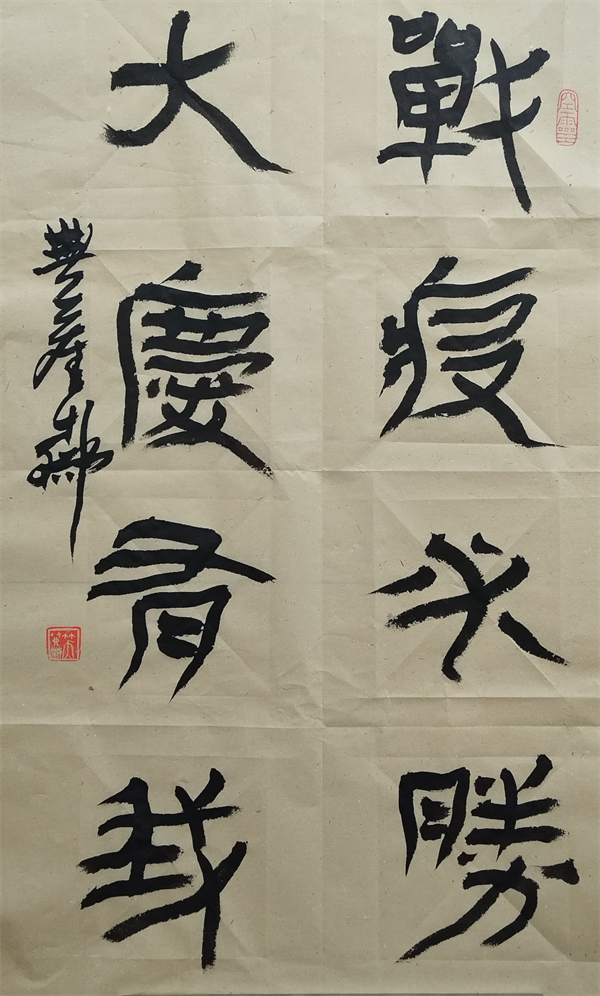 空靈
戰疫必勝
大慶有我